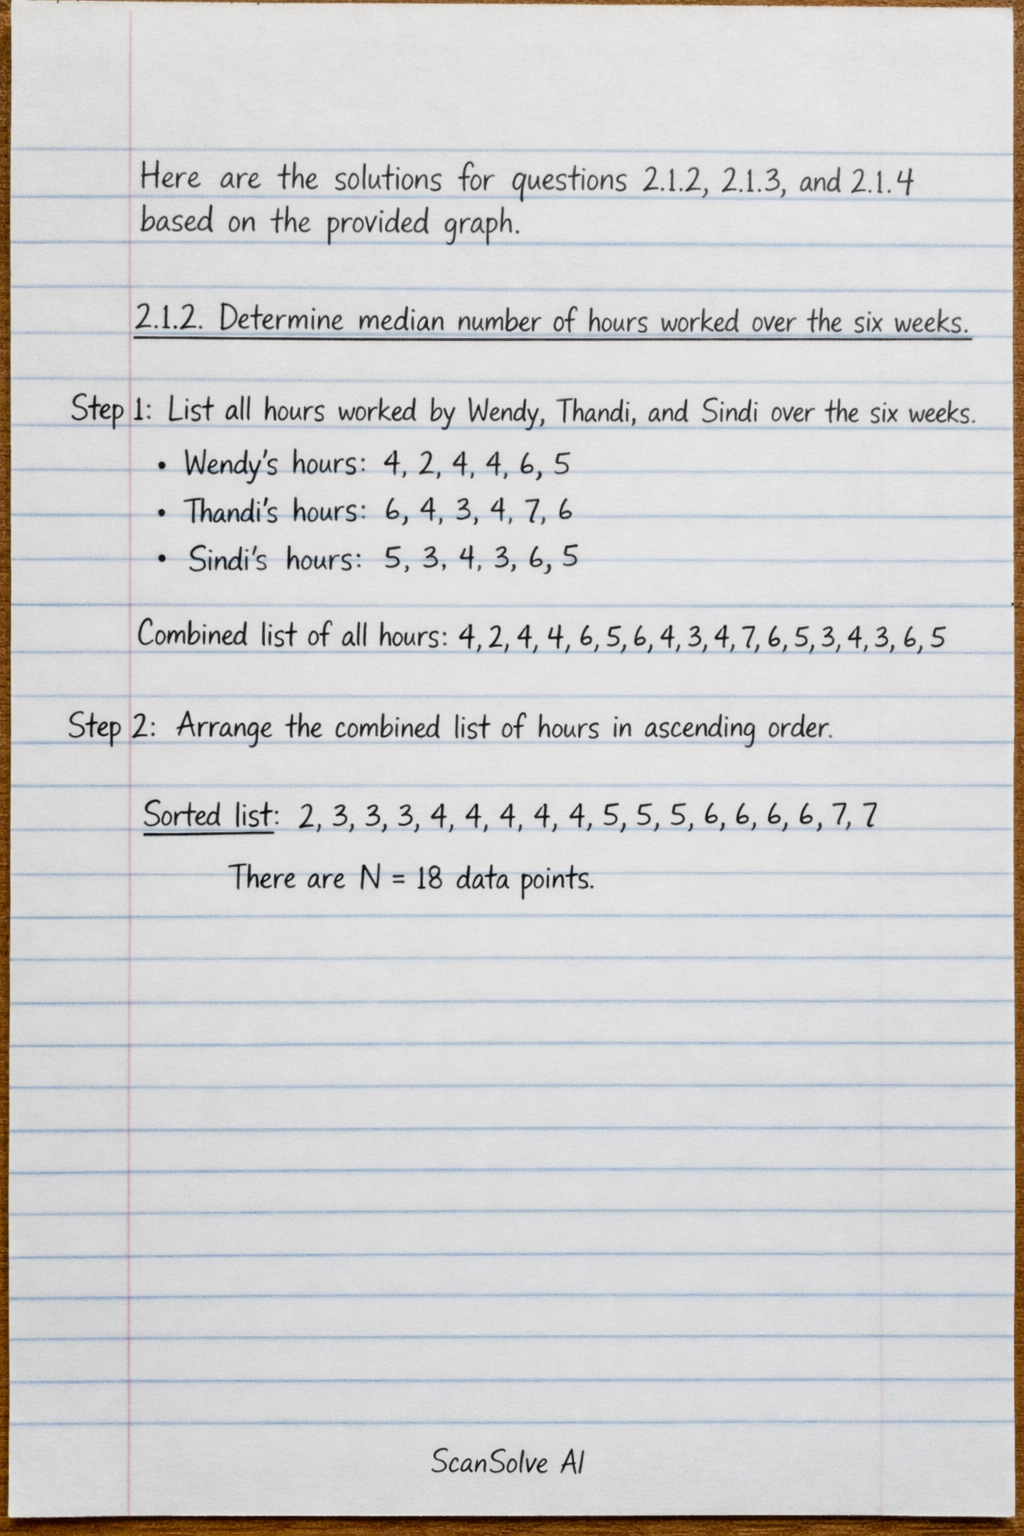 Here are the solutions for questions 2.1.2, 2.1.3, and 2.1.4
based on the provided graph.
2.1.2. Determine median number of hours worked over the six weeks.
Step 1: List all hours worked by Wendy, Thandi, and Sindi over the six weeks.
• Wendy's hours: 4, 2, 4, 4, 6, 5
• Thandi's hours: 6, 4, 3, 4, 7, 6
• Sindi's hours: 5, 3, 4, 3, 6, 5
Combined list of all hours: 4, 2, 4, 4, 6, 5, 6, 4, 3, 4, 7, 6, 5, 3, 4, 3, 6, 5
Step 2: Arrange the combined list of hours in ascending order.
Sorted list: 2, 3, 3, 3, 4, 4, 4, 4, 4, 5, 5, 5, 6, 6, 6, 6, 7, 7
There are N = 18 data points.
ScanSolve AI